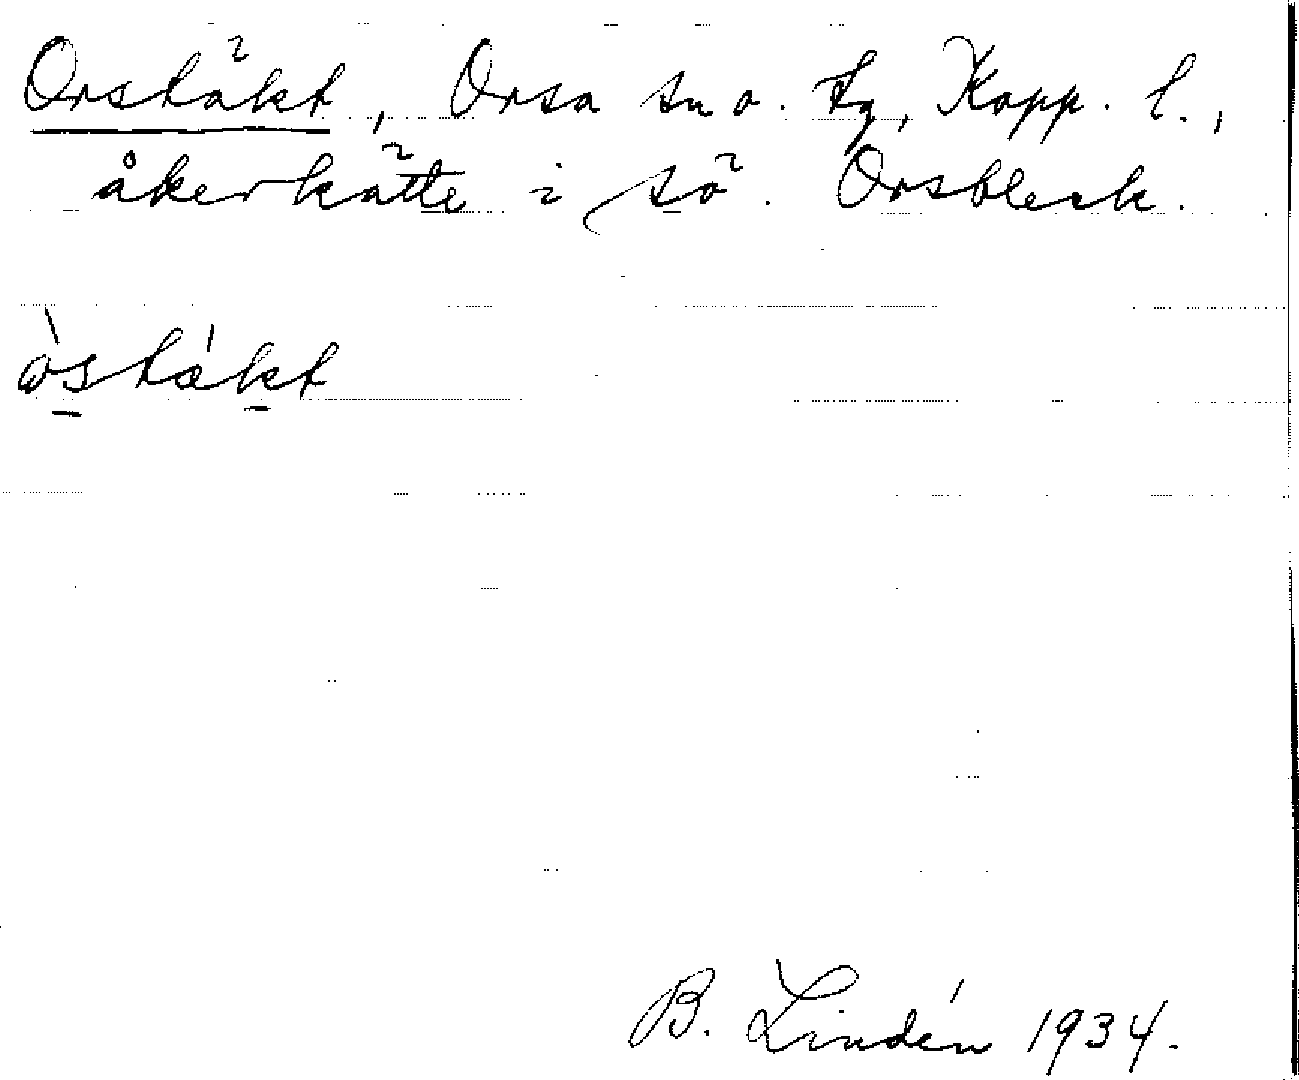 Orstäkt, Orsa sn o. tg, Kopp. l.,
åkerhätte i sö. Orsbleck.
òstàkt
B. Lindén 1934.